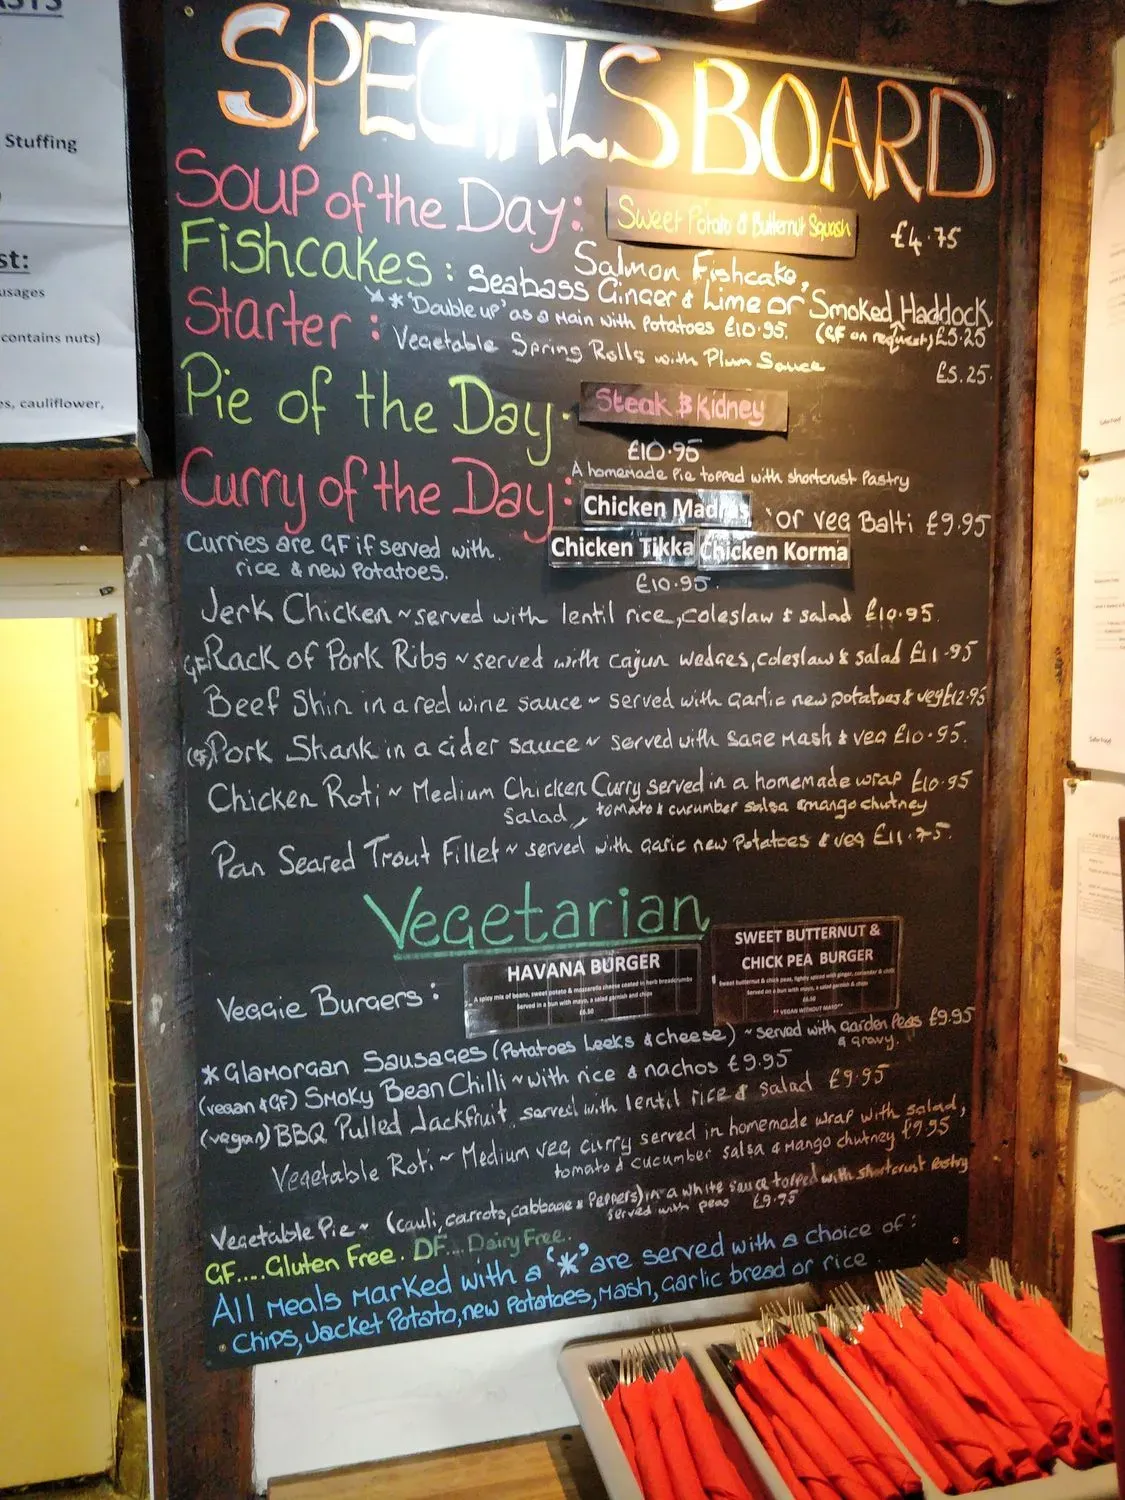 Stuffing
st:
usages
contains nuts)
es, cauliflower,
SPECIALS BOARD
Soup of the Day: Sweet Potato & Butternut Squash £4.75
Fishcakes: Salmon Fishcake,
Seabass Ginger & Lime or Smoked Haddock
**'Double up' as a Main with Potatoes £10.95. (GF on request) £5.25
Starter: Vegetable Spring Rolls with Plum Sauce
£5.25.
Pie of the Day. Steak & Kidney
£10.95
A homemade Pie topped with shortcrust Pastry
Curry of the Day: Chicken Madras or Veg Balti £9.95
Curries are GF if served with Chicken Tikka Chicken Korma
rice & new Potatoes. £10.95.
Jerk Chicken ~ served with lentil rice, coleslaw & salad £10.95.
GF Rack of Pork Ribs ~ served with cajun wedges, coleslaw & salad £11.95
Beef Shin in a red wine sauce ~ served with Garlic new potatoes & veg £12.95
(GF) Pork Shank in a cider sauce ~ served with sage mash & veg £10.95.
Chicken Roti ~ Medium Chicken Curry served in a homemade wrap £10.95
salad, tomato & cucumber salsa & mango chutney
Pan Seared Trout Fillet ~ served with garic new Potatoes & veg £11.75.
Vegetarian
Veggie Burgers:
HAVANA BURGER
A spicy mix of beans, sweet potato & mozzarella cheese coated in herb breadcrumbs
Served in a bun with mayo, a salad garnish and chips
£6.50
SWEET BUTTERNUT &
CHICK PEA BURGER
Sweet butternut & chick peas, lightly spiced with ginger, coriander & chilli
Served on a bun with mayo, a salad garnish and chips
£6.50
**VEGAN WITHOUT MAYO**
*Glamorgan Sausages (Potatoes Leeks & cheese) ~ served with garden Peas £9.95
& gravy.
(vegan & GF) Smoky Bean Chilli ~ with rice & nachos £9.95
(vegan) BBQ Pulled Jackfruit served with lentil rice & salad £9.95
Vegetable Roti ~ Medium veg curry served in homemade wrap with salad,
tomato & cucumber salsa & Mango chutney £9.95
Vegetable Pie ~ (cauli, carrots, cabbage & Peppers) in a white sauce topped with shortcrust Pastry
served with peas £9.95
GF....Gluten Free. DF... Dairy Free.
All Meals Marked with a '*' are served with a choice of:
Chips, Jacket Potato, new Potatoes, Mash, Garlic bread or rice